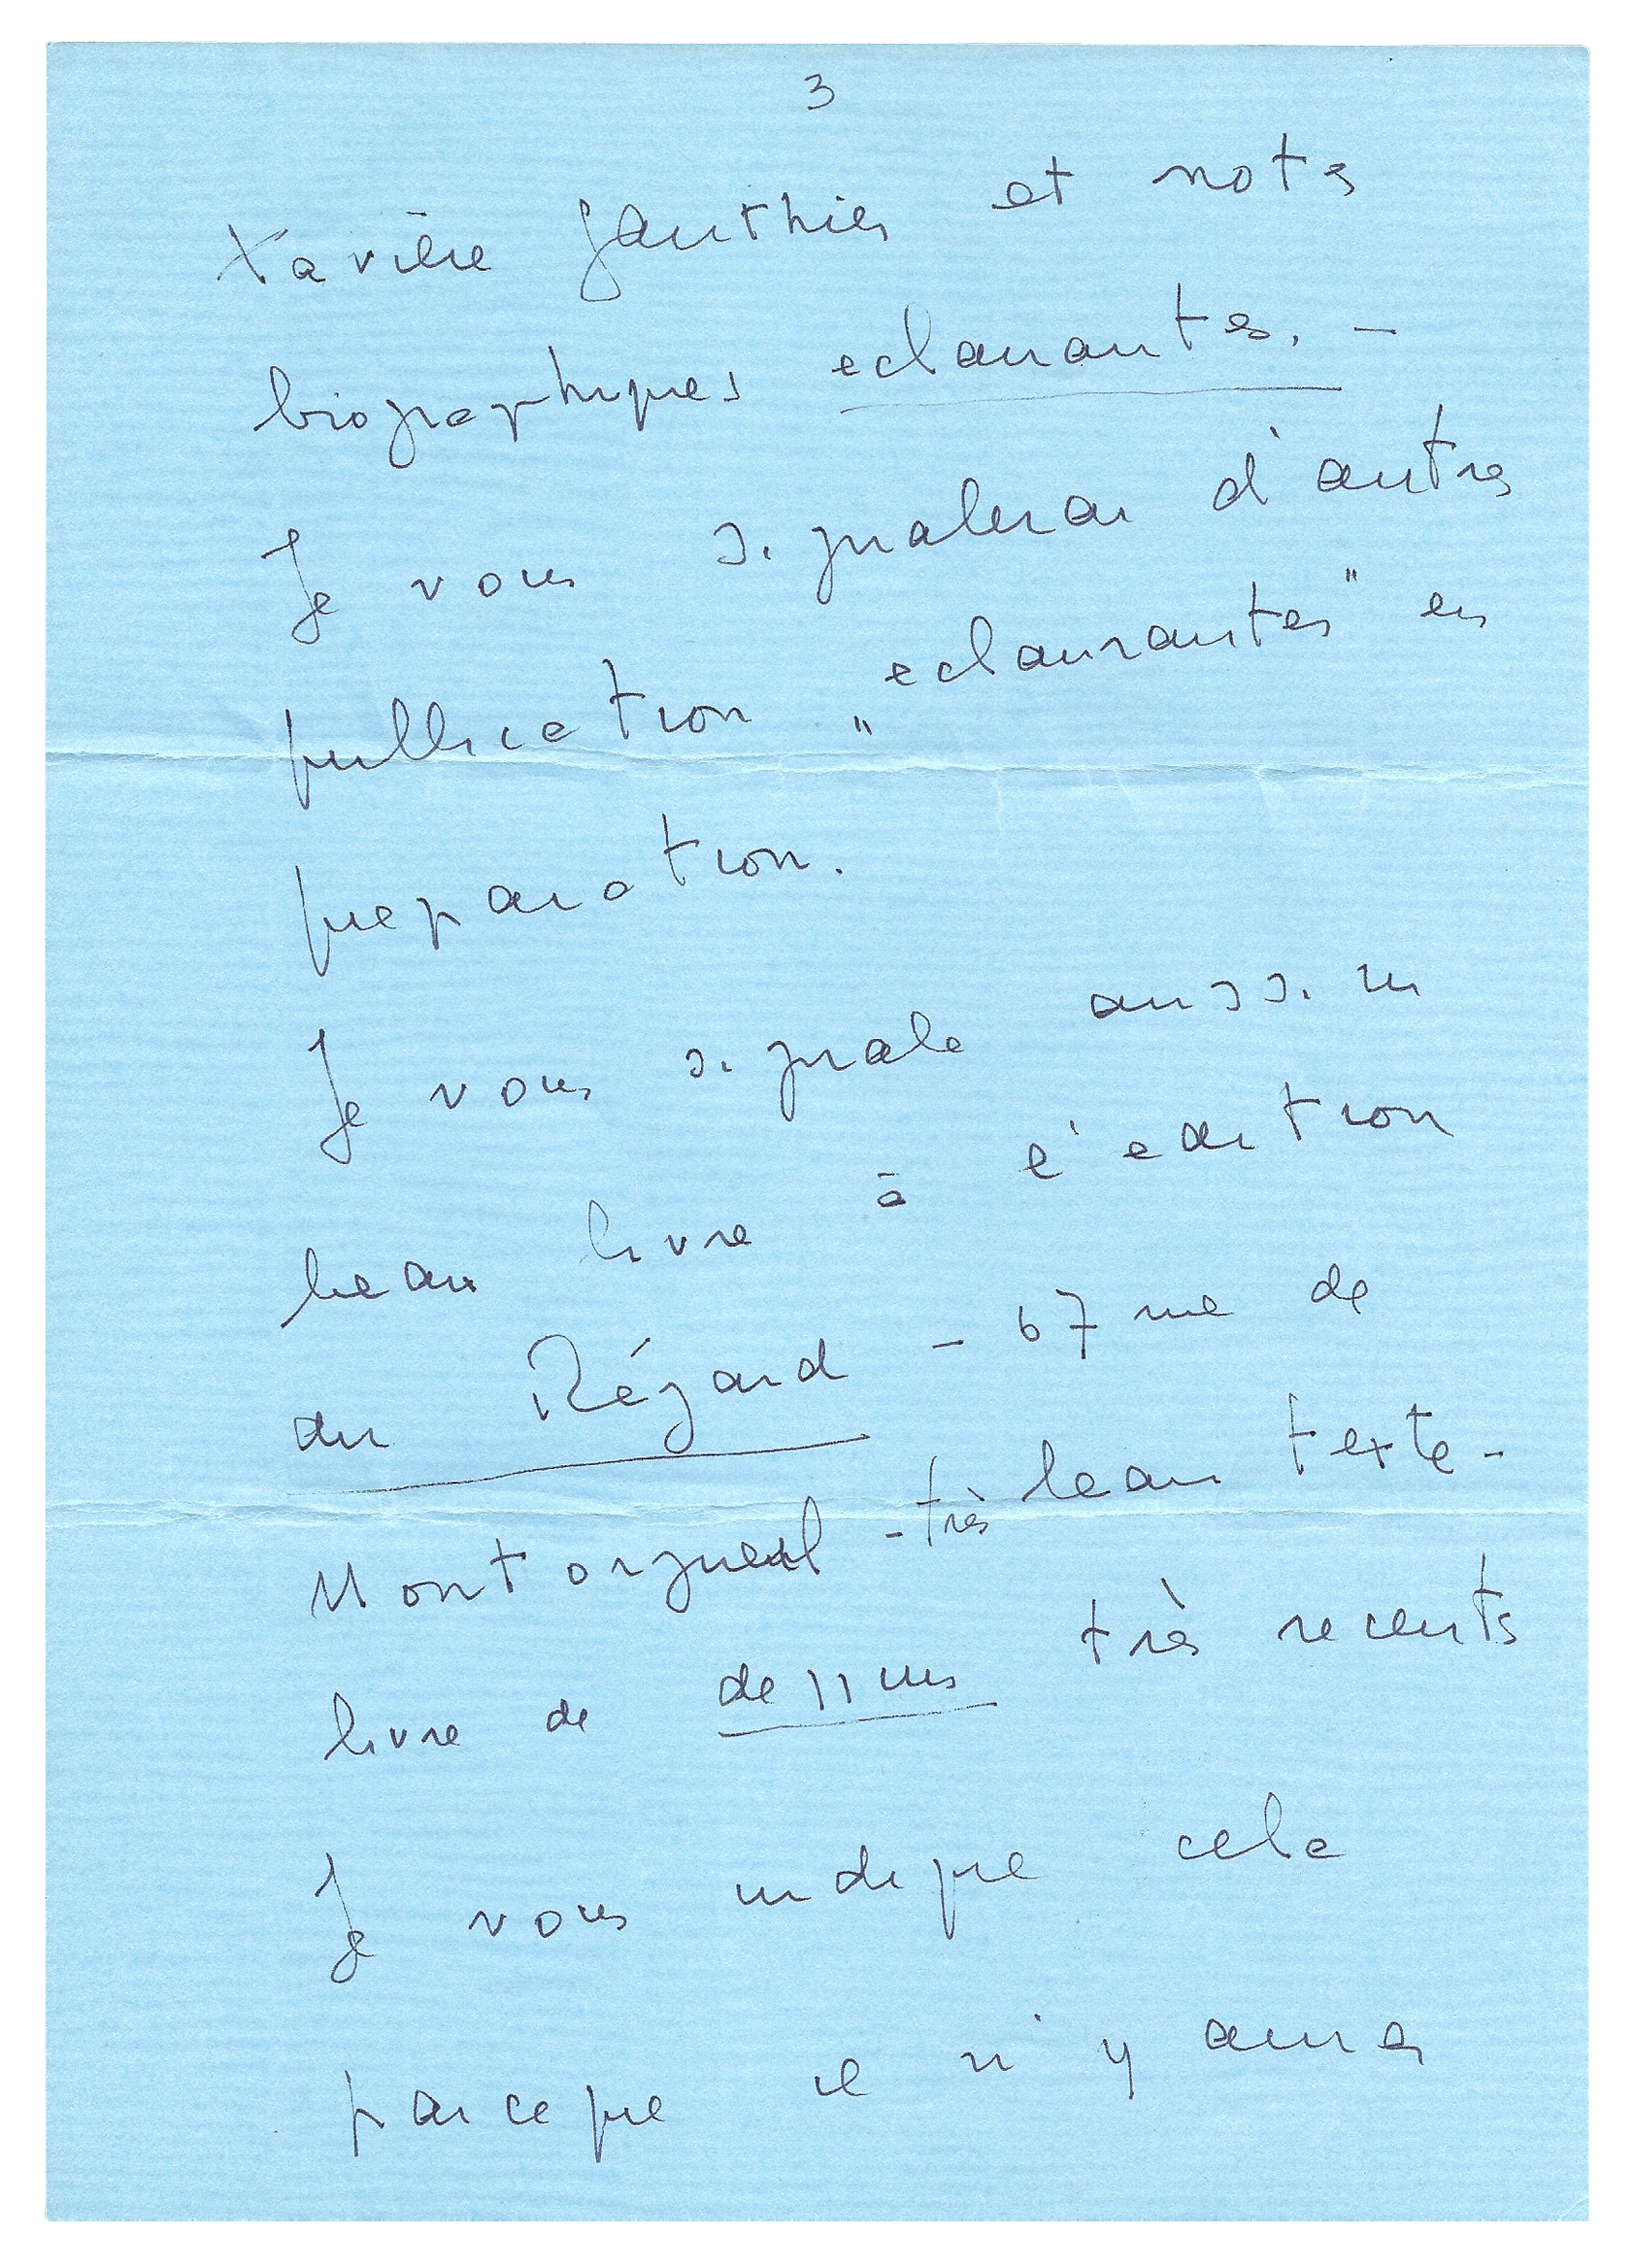 3
Xavière Gauthier et notes
biographiques eclairantes. -
Je vous signalerai d'autres
publication „eclairantes" en
preparation.
Je vous signale aussi un
beau livre à l'edition
du Régard - 67 rue de
Montorgueil - très beau texte -
livre de dessins très recents
Je vous indique cela
parce que il n'y aura